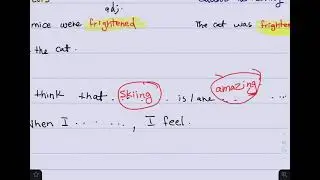 adj.
mice were frightened The cat was frighte
the cat.
think that . skiing .. is / are ... amazing ...
When I ........ , I feel.